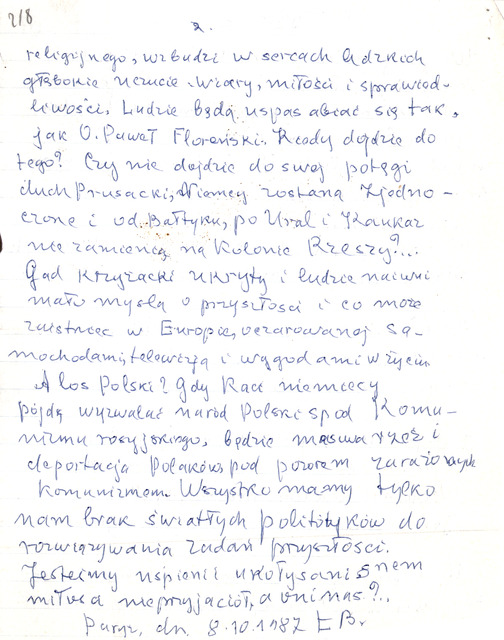 2/8
2.
religijnego, wzbudzi w sercach ludzkich
głębokie uczucie wiary, miłości i sprawied-
liwości. Ludzie będą uspasabiać się tak,
jak O. Paweł Floreński. Kiedy dojdzie do
tego? Czy nie dojdzie do swej potęgi
duch Prusacki, Niemcy zostaną zjedno-
czone i od Bałtyku, po Ural i Kaukaz
nie zamienią na Kolonie Rzeszy?...
Gad krzyżacki ukryty i ludzie naiwni
mało myślą o przyszłości i co może
zaistnieć w Europie, oczarowanej sa-
mochodami, telewizją i wygodami w życiu
A los Polski? Gdy Kaci niemieccy
pójdą wyzwalać naród Polski spod Komu-
nizmu rosyjskiego, będzie masowa rzeź i
deportacja Polaków, pod pozorem zarażonych
Komunizmem. Wszystko mamy tylko
nam brak światłych polityków do
rozwiązywania zadań przyszłości.
Jesteśmy uspieni ukołysani snem
miłości nieprzyjaciół, a oni nas?..
Paryż, dn. 8.10.1987 E B.